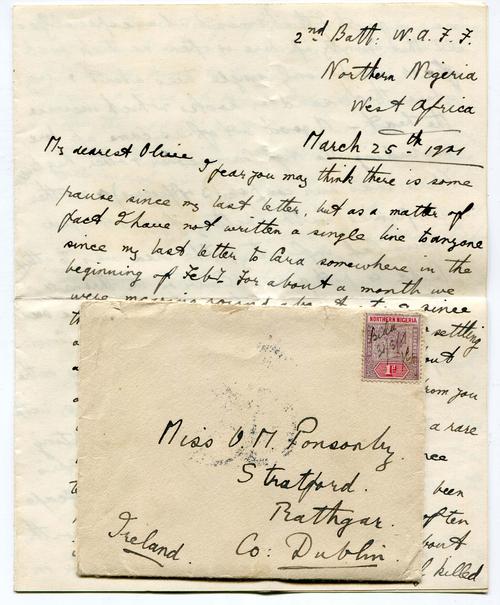 2nd Batt. W. A. F. F.
Northern Nigeria
West Africa
March 25th 1901
My dearest Olive
I fear you may think there is some
pause since my last letter, but as a matter of
fact I have not written a single line to anyone
since my last letter to Cara somewhere in the
beginning of Feb? For about a month we
were
since
settling
out
from you
a rare
been
often
about
killed
NORTHERN NIGERIA
1d
Miss O. M. Ponsonby.
Stratford.
Rathgar.
Co: Dublin.
Ireland.